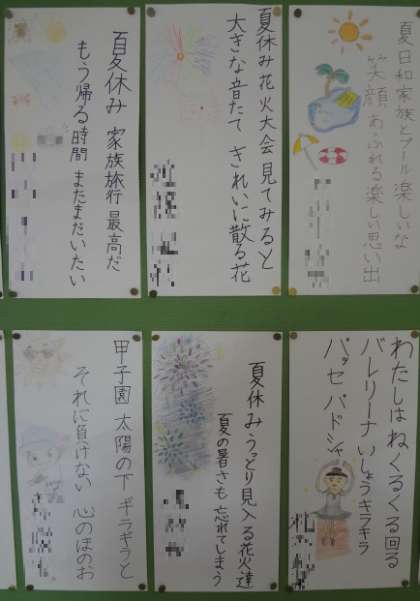 夏日和家族とプール楽しいな
笑顔あふれる楽しい思い出
夏休み 花火大会 見てみると
大きな音たて きれいに散る花
夏休み 家族旅行 最高だ
もう帰る時間 まだまだいたい
わたしはねくるくる回る
バレリーナいしょうキラキラ
パッセパドシャ
夏休み うっとり見入る花火達
夏の暑さも 忘れてしまう
甲子園 太陽の下 ギラギラと
それに負けない 心のほのお